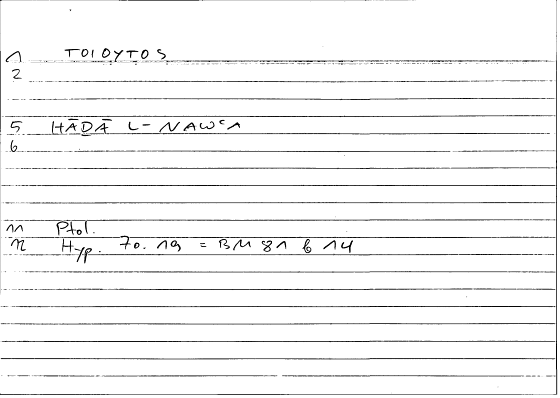 1 TOIOYTOS
2
5 HĀḎĀ L-NAWʿ
6
11 Ptol.
12 Hyp. 70. 19 = BM 81 b 14